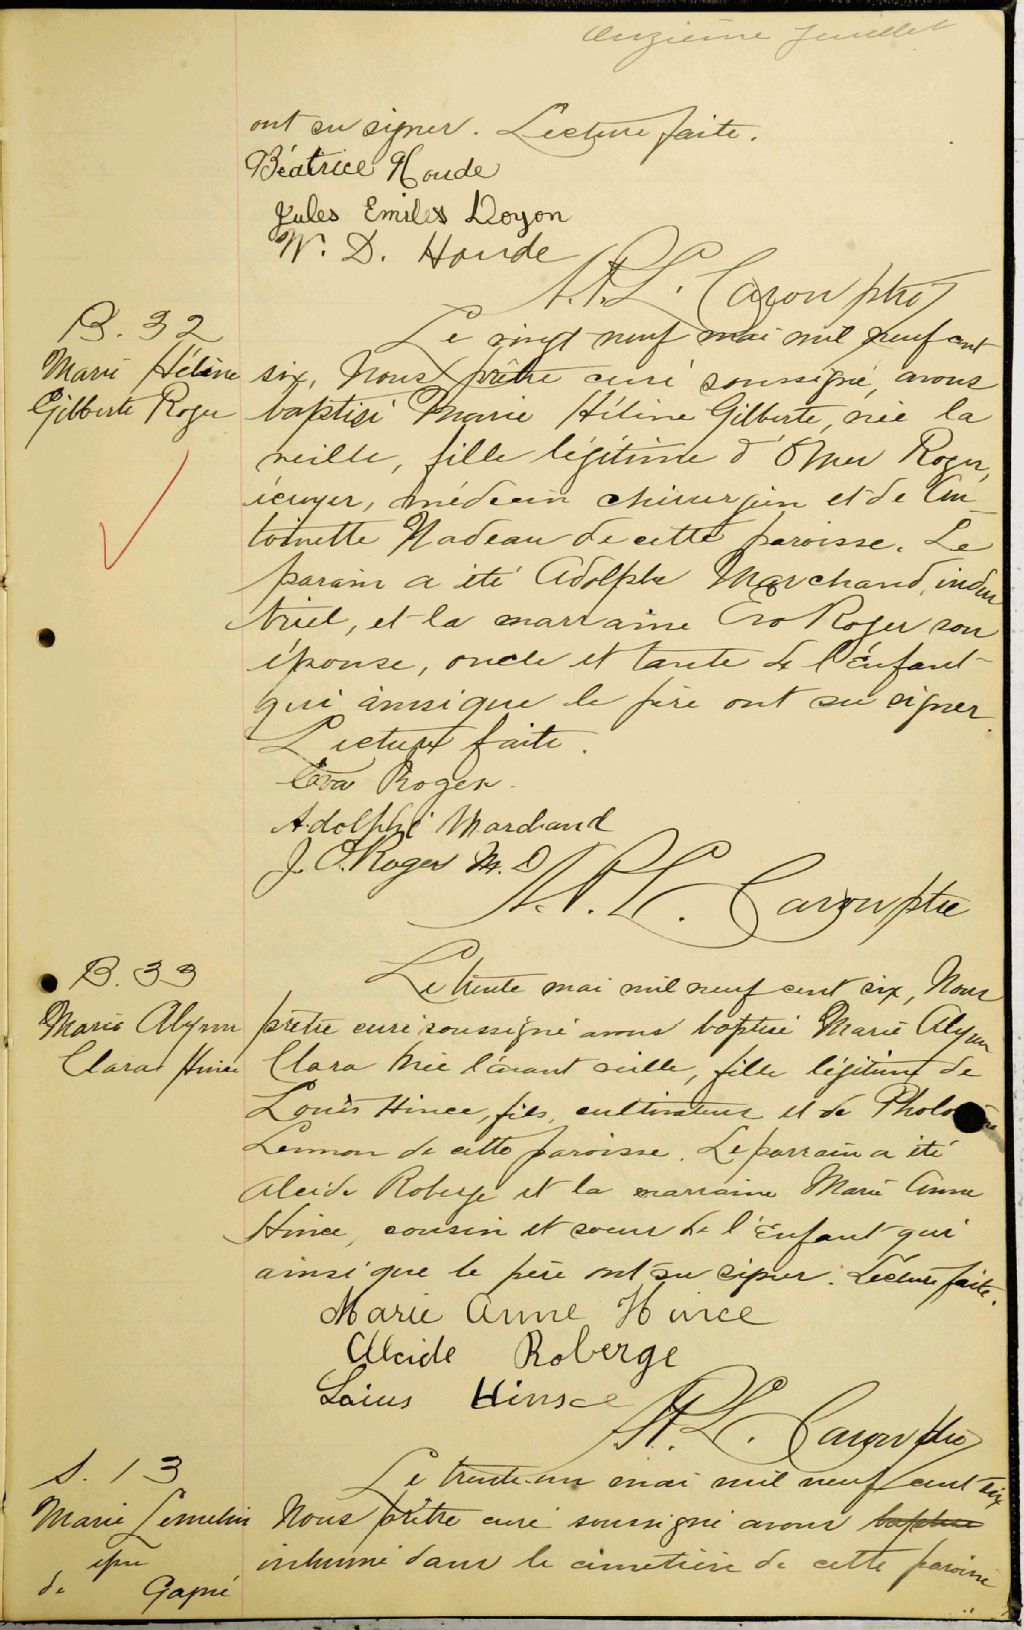 Onzième feuillet
ont su signer. Lecture faite.
Béatrice Houde
Jules Emiles Doyon
W. D. Houde
A.P.L. Caron ptre
B. 32
Marie Hélène
Gilberte Roger
Le vingt neuf mai mil neuf cent
six, Nous prêtre curé soussigné, avons
baptisé Marie Hélène Gilberte, née la
veille, fille légitime d'Omer Roger,
écuyer, médecin chirurgien et de An-
toinette Nadeau de cette paroisse. Le
parain a été Adolphe Marchand, indus
triel, et la marraine Eva Roger son
épouse, oncle et tante de l'Enfant
qui ainsi que le père ont su signer.
Lecture faite.
Eva Roger
Adolphe Marchand
J. O. Roger M. D
A.P.L. Caron ptre
B. 33
Marie Alymn
Clara Hince
Le trente mai mil neuf cent six, Nous
prêtre curé soussigné avons baptisé Marie Alymn
Clara née l'avant veille, fille légitime de
Louis Hince, fils, cultivateur et de
Lennon de cette paroisse. Le parrain a été
Alcide Roberge et la marraine Marie Anne
Hince, cousin et soeur de l'Enfant qui
ainsi que le père ont su signer. Lecture faite.
Marie Anne Hince
Alcide Roberge
Loius Hinse
A.P.L. Caron ptre
S. 13
Marie Lemelin
épse
de Gagné
Le trente-un mai mil neuf cent six
Nous prêtre curé soussigné avons baptisé
inhumé dans le cimetière de cette paroisse